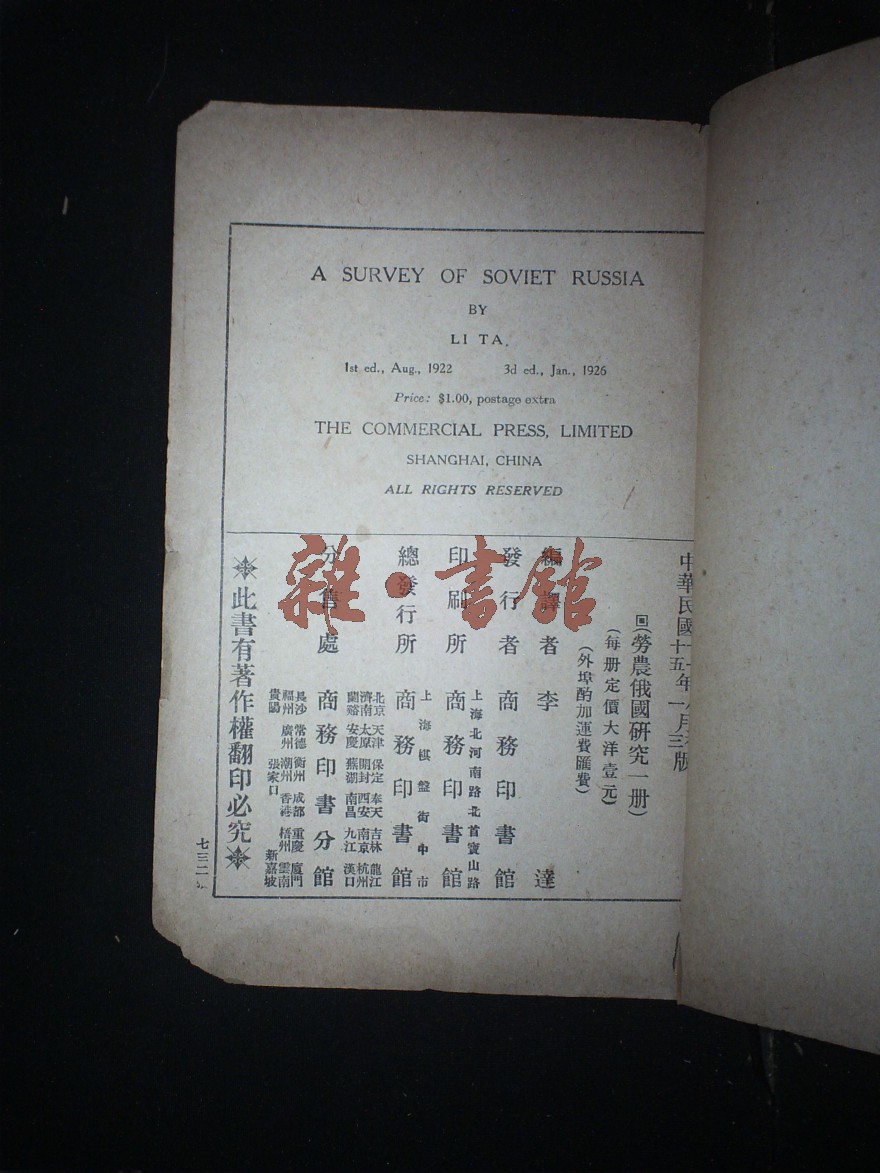 A SURVEY OF SOVIET RUSSIA
BY
LI TA.
1st ed., Aug., 1922 3d ed., Jan., 1926
Price: $1.00, postage extra
THE COMMERCIAL PRESS, LIMITED
SHANGHAI, CHINA
ALL RIGHTS RESERVED
中華民國
十五年一月三版
回(勞農俄國研究一册)
(每册定價大洋壹元)
(外埠酌加運費匯費)
編譯者 李達
發行者 商務印書館
印刷所 上海北河南路北首寶山路 商務印書館
總發行所 上海棋盤街中市 商務印書館
分售處 商務印書分館
北京 天津 保定 奉天 吉林 龍江
濟南 太原 開封 西安 南京 杭州
蘭谿 安慶 蕪湖 南昌 九江 漢口
長沙 常德 衡州 成都 重慶 廈門
福州 廣州 潮州 香港 梧州 雲南
貴陽 張家口 新嘉坡
此書有著作權翻印必究
七三二
雜·書館